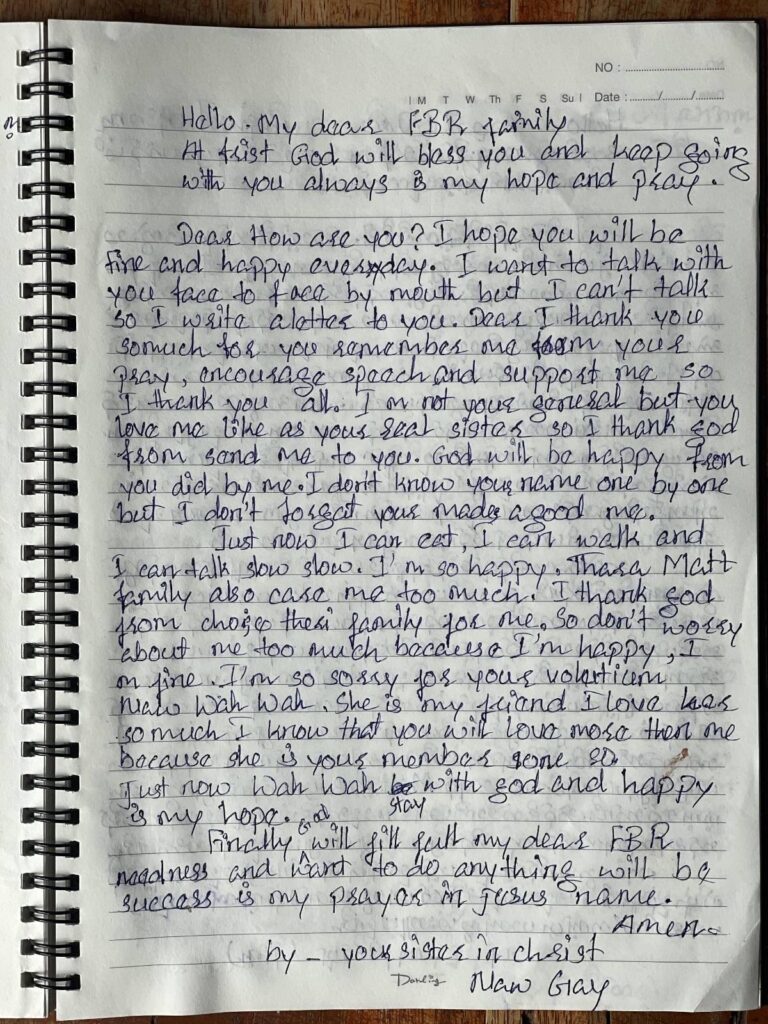 NO :
M T W Th F S Su Date : / /
Hello. My dear FBR family
At frist God will bless you and keep going
with you always is my hope and pray.
Dear How are you? I hope you will be
fine and happy everyday. I want to talk with
you face to face by mouth but I can't talk
so I write a letter to you. Dear I thank you
somuch for you remember me from your
pray, encourage speech and support me so
I thank you all. I'm not your general but you
love me like as your real sister so I thank god
from send me to you. God will be happy from
you did by me. I don't know your name one by one
but I don't forget your made a good me.
Just now I can eat, I can walk and
I can talk slow slow. I'm so happy. Thara Matt
family also care me too much. I thank god
from choice their family for me. So don't worry
about me too much because I'm happy, I
m fine. I'm so sorry for your
Naw Wah Wah. She is my friend I love her
so much I know that you will love more then me
because she is your member gone so
Just now Wah Wah stay with god and happy
is my hope.
Finally God will fill full my dear FBR
neadness and want to do anything will be
success is my prayer in Jesus name.
Amen.
by - your sister in christ
Naw Gray